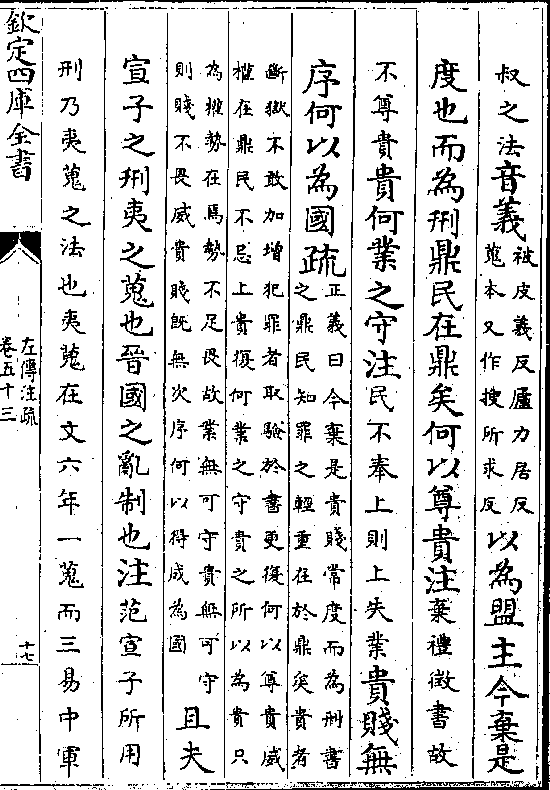 叔之法音義被皮義反廬力居反
蒐本又作搜所求反
以為盟主今棄是
度也而為刑鼎民在鼎矣何以尊貴注棄禮徴書故
不尊貴貴何業之守注民不奉上則上失業貴賤無
序何以為國疏正義曰今棄是貴賤常度而為刑書
之鼎民知罪之輕重在於鼎矣貴者
斷獄不敢加增犯罪者取驗於書更復何以尊貴威
權在鼎民不忌上貴復何業之守貴之所以為貴只
為權勢在焉勢不足畏故業無可守貴無可守
則賤不畏威貴賤既無次序何以得成為國
且夫
宣子之刑夷之蒐也晉國之亂制也注范宣子所用
刑乃夷蒐之法也夷蒐在文六年一蒐而三易中軍
欽定四庫全書
左傳注疏
卷五十三
十七